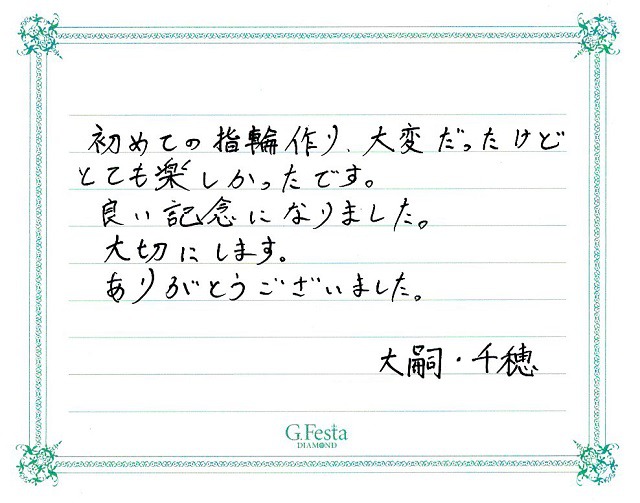 初めての指輪作り、大変だったけど
とても楽しかったです。
良い記念になりました。
大切にします。
ありがとうございました。
大嗣・千穂
G.Festa
DIAMOND